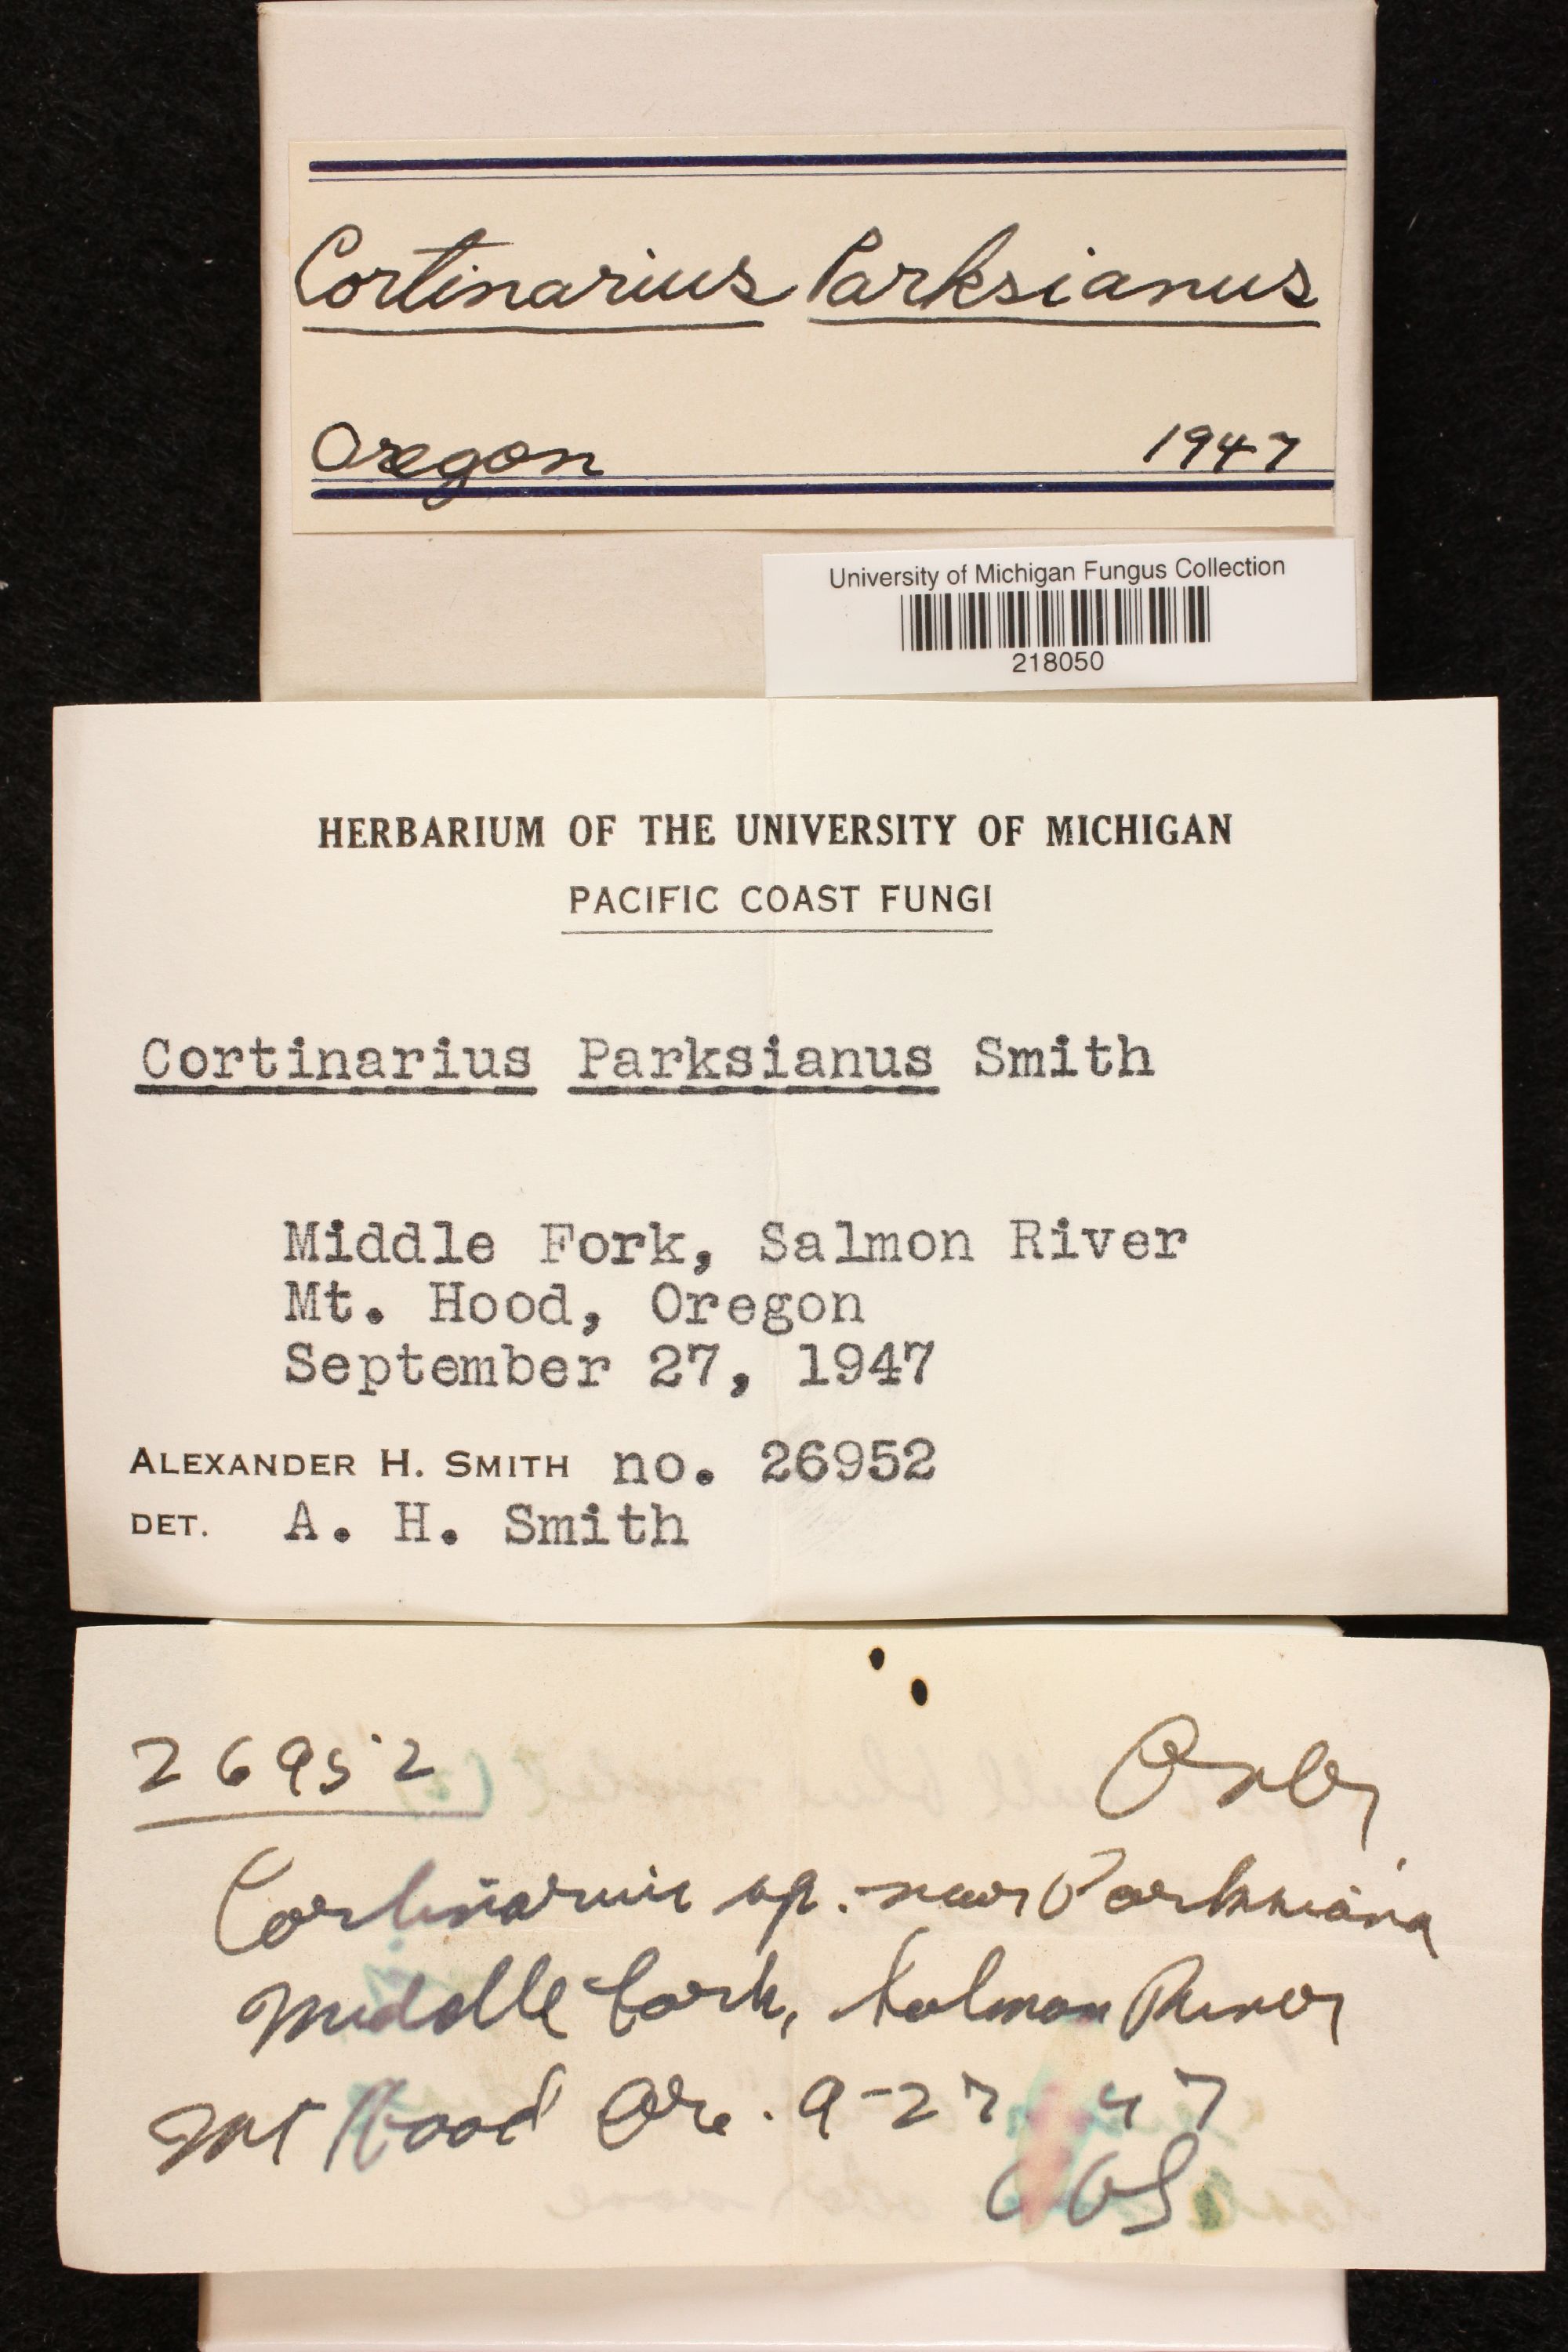 Cortinarius Parksianus
Oregon 1947
University of Michigan Fungus Collection
218050
HERBARIUM OF THE UNIVERSITY OF MICHIGAN
PACIFIC COAST FUNGI
Cortinarius Parksianus Smith
Middle Fork, Salmon River
Mt. Hood, Oregon
September 27, 1947
ALEXANDER H. SMITH no. 26952
DET. A. H. Smith
26952
Cortinarius sp. near Parksiana
Middle fork, Salmon River
Mt Hood Ore. 9-27-47